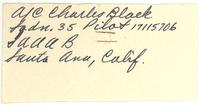 A/C Charles Black
Sqdn. 35 Pilot 17115706
SAAAB
Santa Ana, Calif.